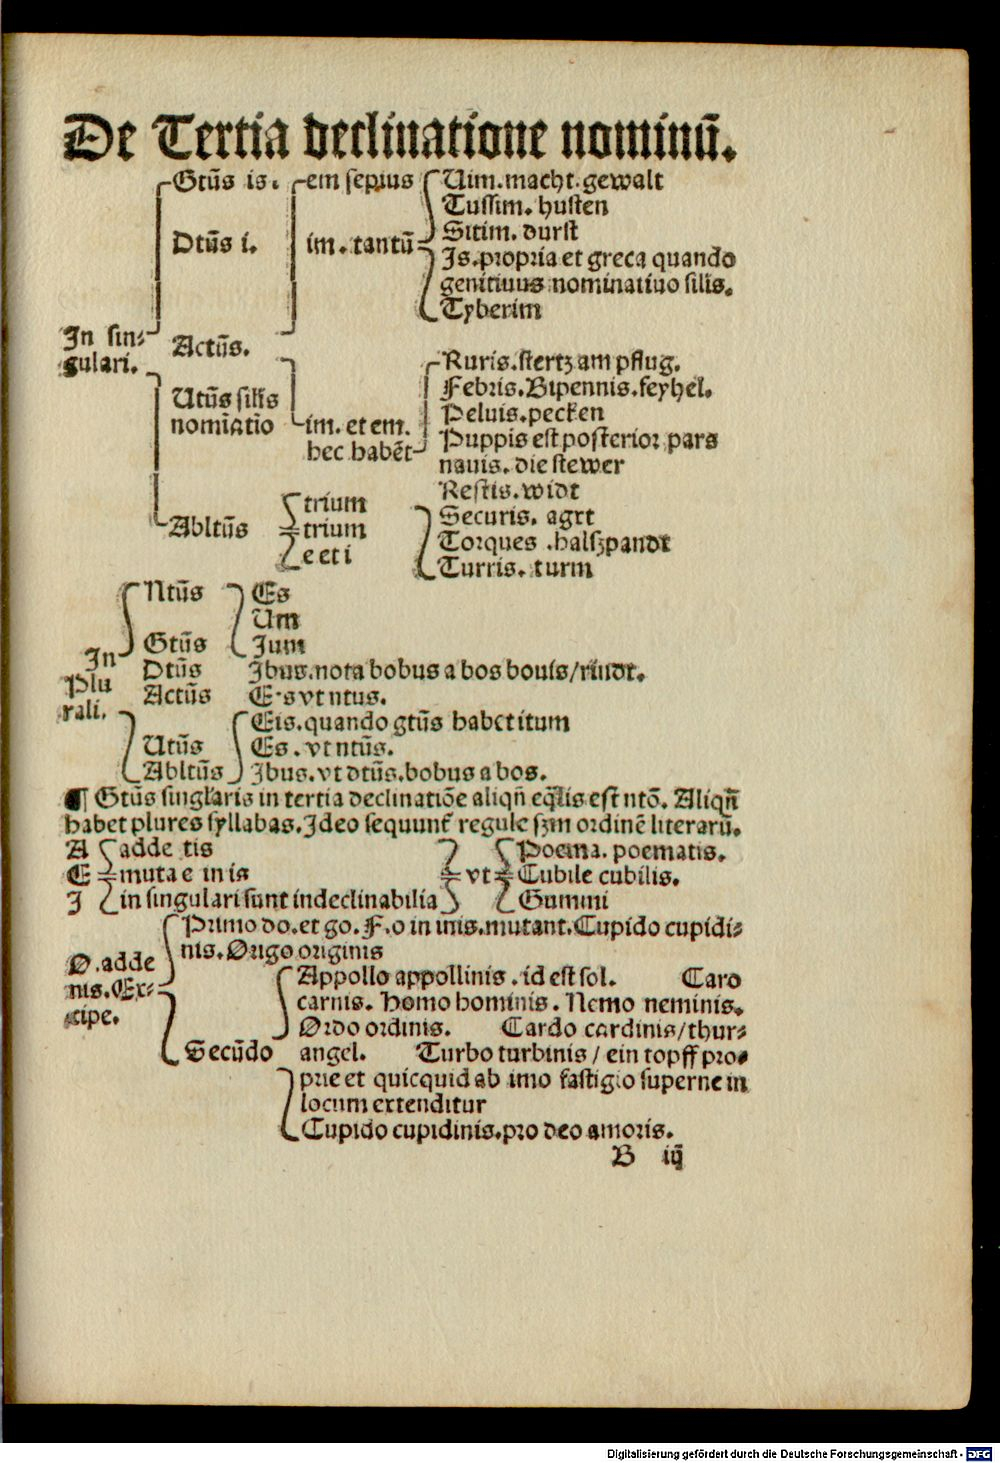 De Tertia declinatione nominū.
Gtūs is. em sepius Uim. macht. gewalt
Tussim. husten
Sitim. durst
Dtūs i. im. tantū
Is. propria et greca quando
genitiuus nominatiuo silis.
Tyberim
In sin⸗
gulari.
Actūs.
Ruris. stertz am pflug.
Febris. Bipennis. feyhel.
Utūs silis
nomīatio im. et em.
hec habēt
Peluis. pecken
Puppis est posterior pars
nauis. die stewer
Restis. widt
Abltūs trium
trium
e et i
Securis. agrt
Torques. halszpandt
Turris. turm
Ntūs Es
Um
Gtūs Ium
In
Plu
rali.
Dtūs Ibus. nota bobus a bos bouis/rindt.
Actūs E.s vt ntus.
Eis. quando gtūs habet itum
Utūs Es. vt ntūs.
Abltūs Ibus. vt dtūs. bobus a bos.
¶ Gtūs singlaris in tertia declinatiōe aliqn̄ eq̄lis est ntō. Aliqn̄
habet plures syllabas. Ideo sequunt᷑ regule sꝫm ordinē literarū.
A adde tis Poema. poematis.
E muta e in is vt Cubile cubilis.
I in singulari sunt indeclinabilia Gummi
Primo do. et go. F. o in inis. mutant. Cupido cupidi⸗
nis. Origo originis
O. adde
nis. Ex⸗
cipe.
Appollo appollinis. id est sol. Caro
carnis. Homo hominis. Nemo neminis.
Ordo ordinis. Cardo cardinis/thur⸗
Secūdo angel. Turbo turbinis/ein topff pro⸗
prie et quicquid ab imo fastigio superne in
locum extenditur
Cupido cupidinis. pro deo amoris.
B iij
Digitalisierung gefördert durch die Deutsche Forschungsgemeinschaft - DFG